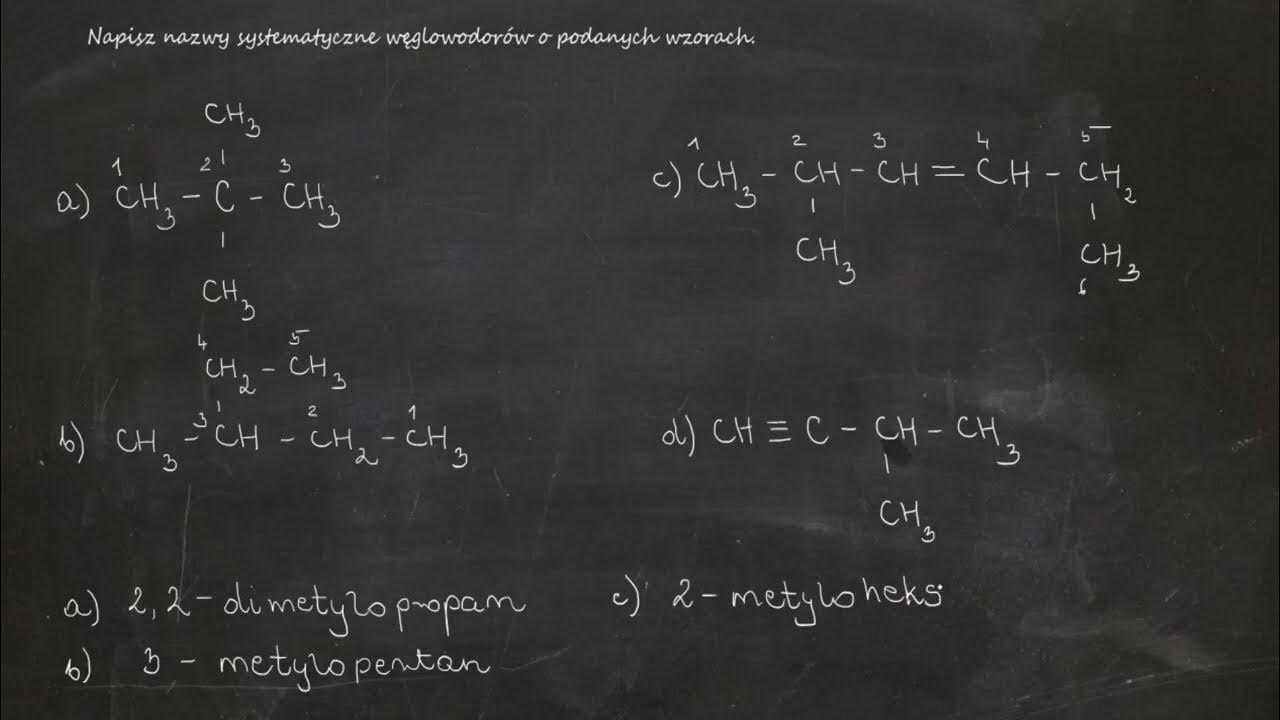 Napisz nazwy systematyczne węglowodorów o podanych wzorach.
CH₃
1 2 3
a) CH₃ – C – CH₃
CH₃
4 5
CH₂ – CH₃
3 2 1
b) CH₃ – CH – CH₂ – CH₃
1 2 3 4 5
c) CH₃ – CH – CH = CH – CH₂
CH₃ CH₃
6
d) CH ≡ C – CH – CH₃
CH₃
a) 2,2 – dimetylopropan
b) 3 – metylopentan
c) 2 – metyloheks